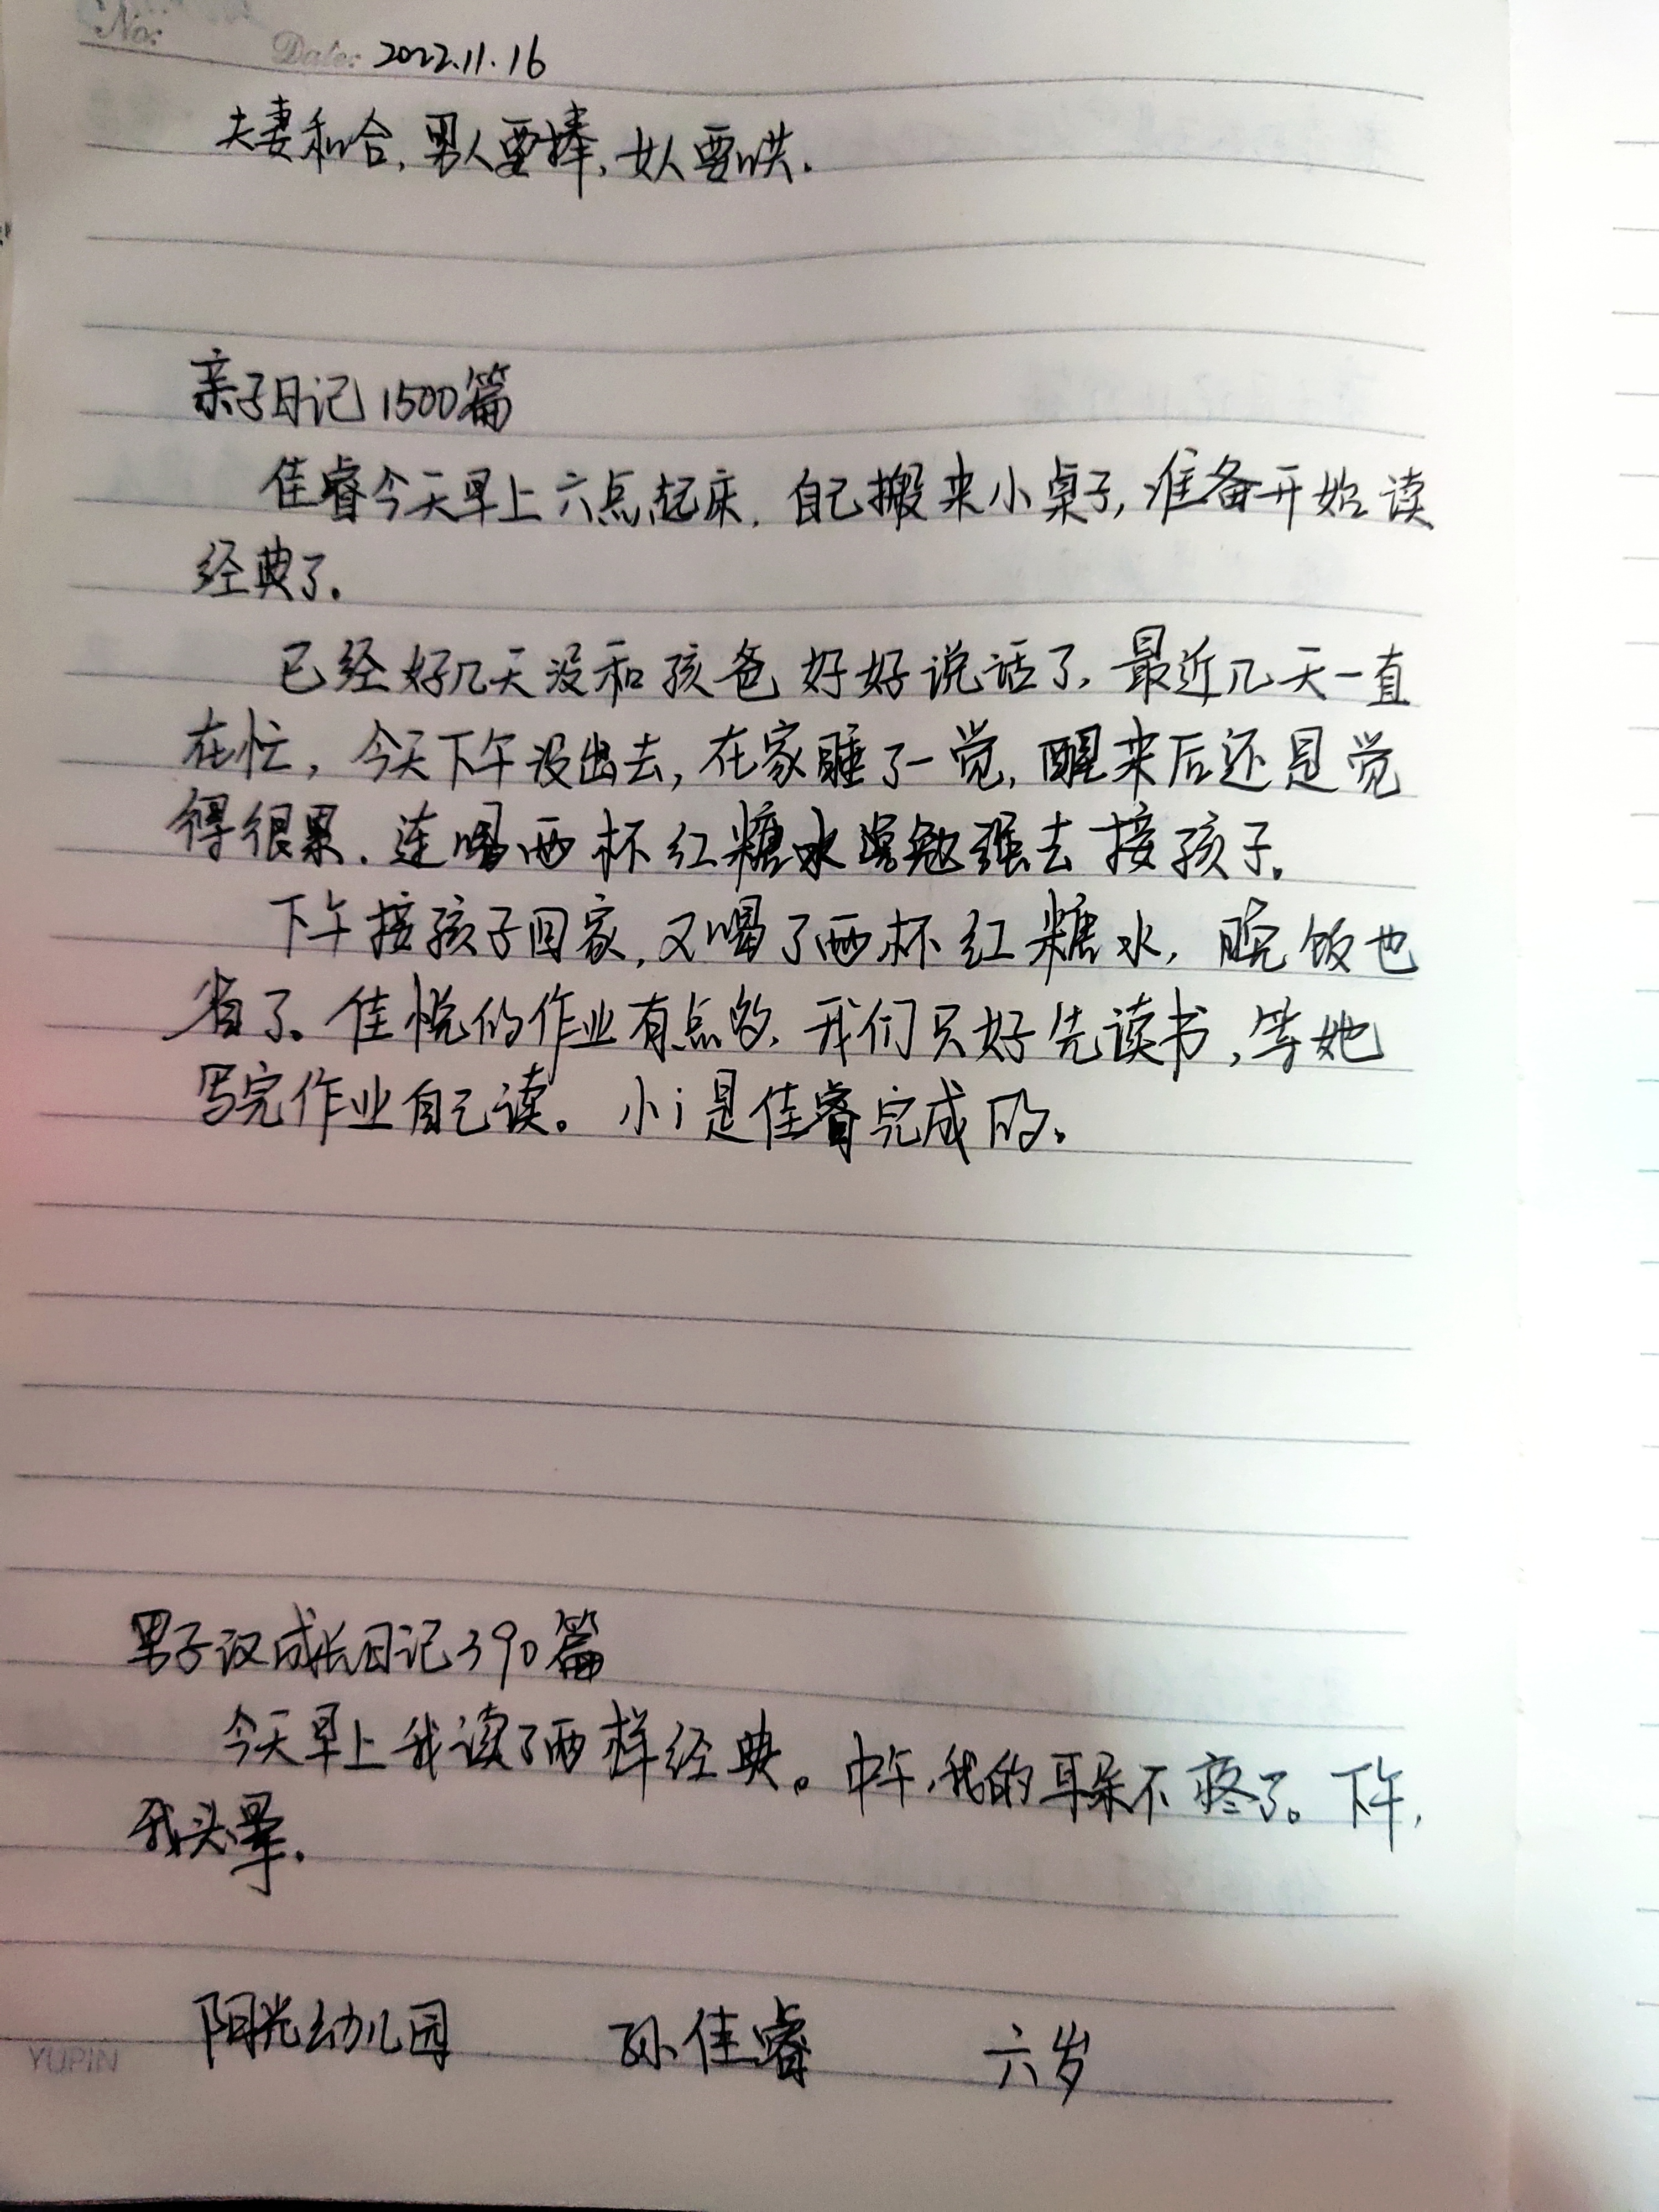 No:
Date: 2022.11.16
夫妻和合,男人要捧,女人要哄.
亲子日记1500篇
佳睿今天早上六点起床,自己搬来小桌子,准备开始读
经典了.
已经好几天没和孩爸好好说话了,最近几天一直
在忙,今天下午没出去,在家睡了一觉,醒来后还是觉
得很累.连喝两杯红糖水勉强去接孩子.
下午接孩子回家,又喝了两杯红糖水,晚饭也
省了。佳悦的作业有点多,我们只好先读书,等她
写完作业自己读。小i是佳睿完成的.
男子汉成长日记390篇
今天早上我读了两样经典。中午,我的耳朵不疼了。下午,
我头晕.
阳光幼儿园 孙佳睿 六岁
YUPIN